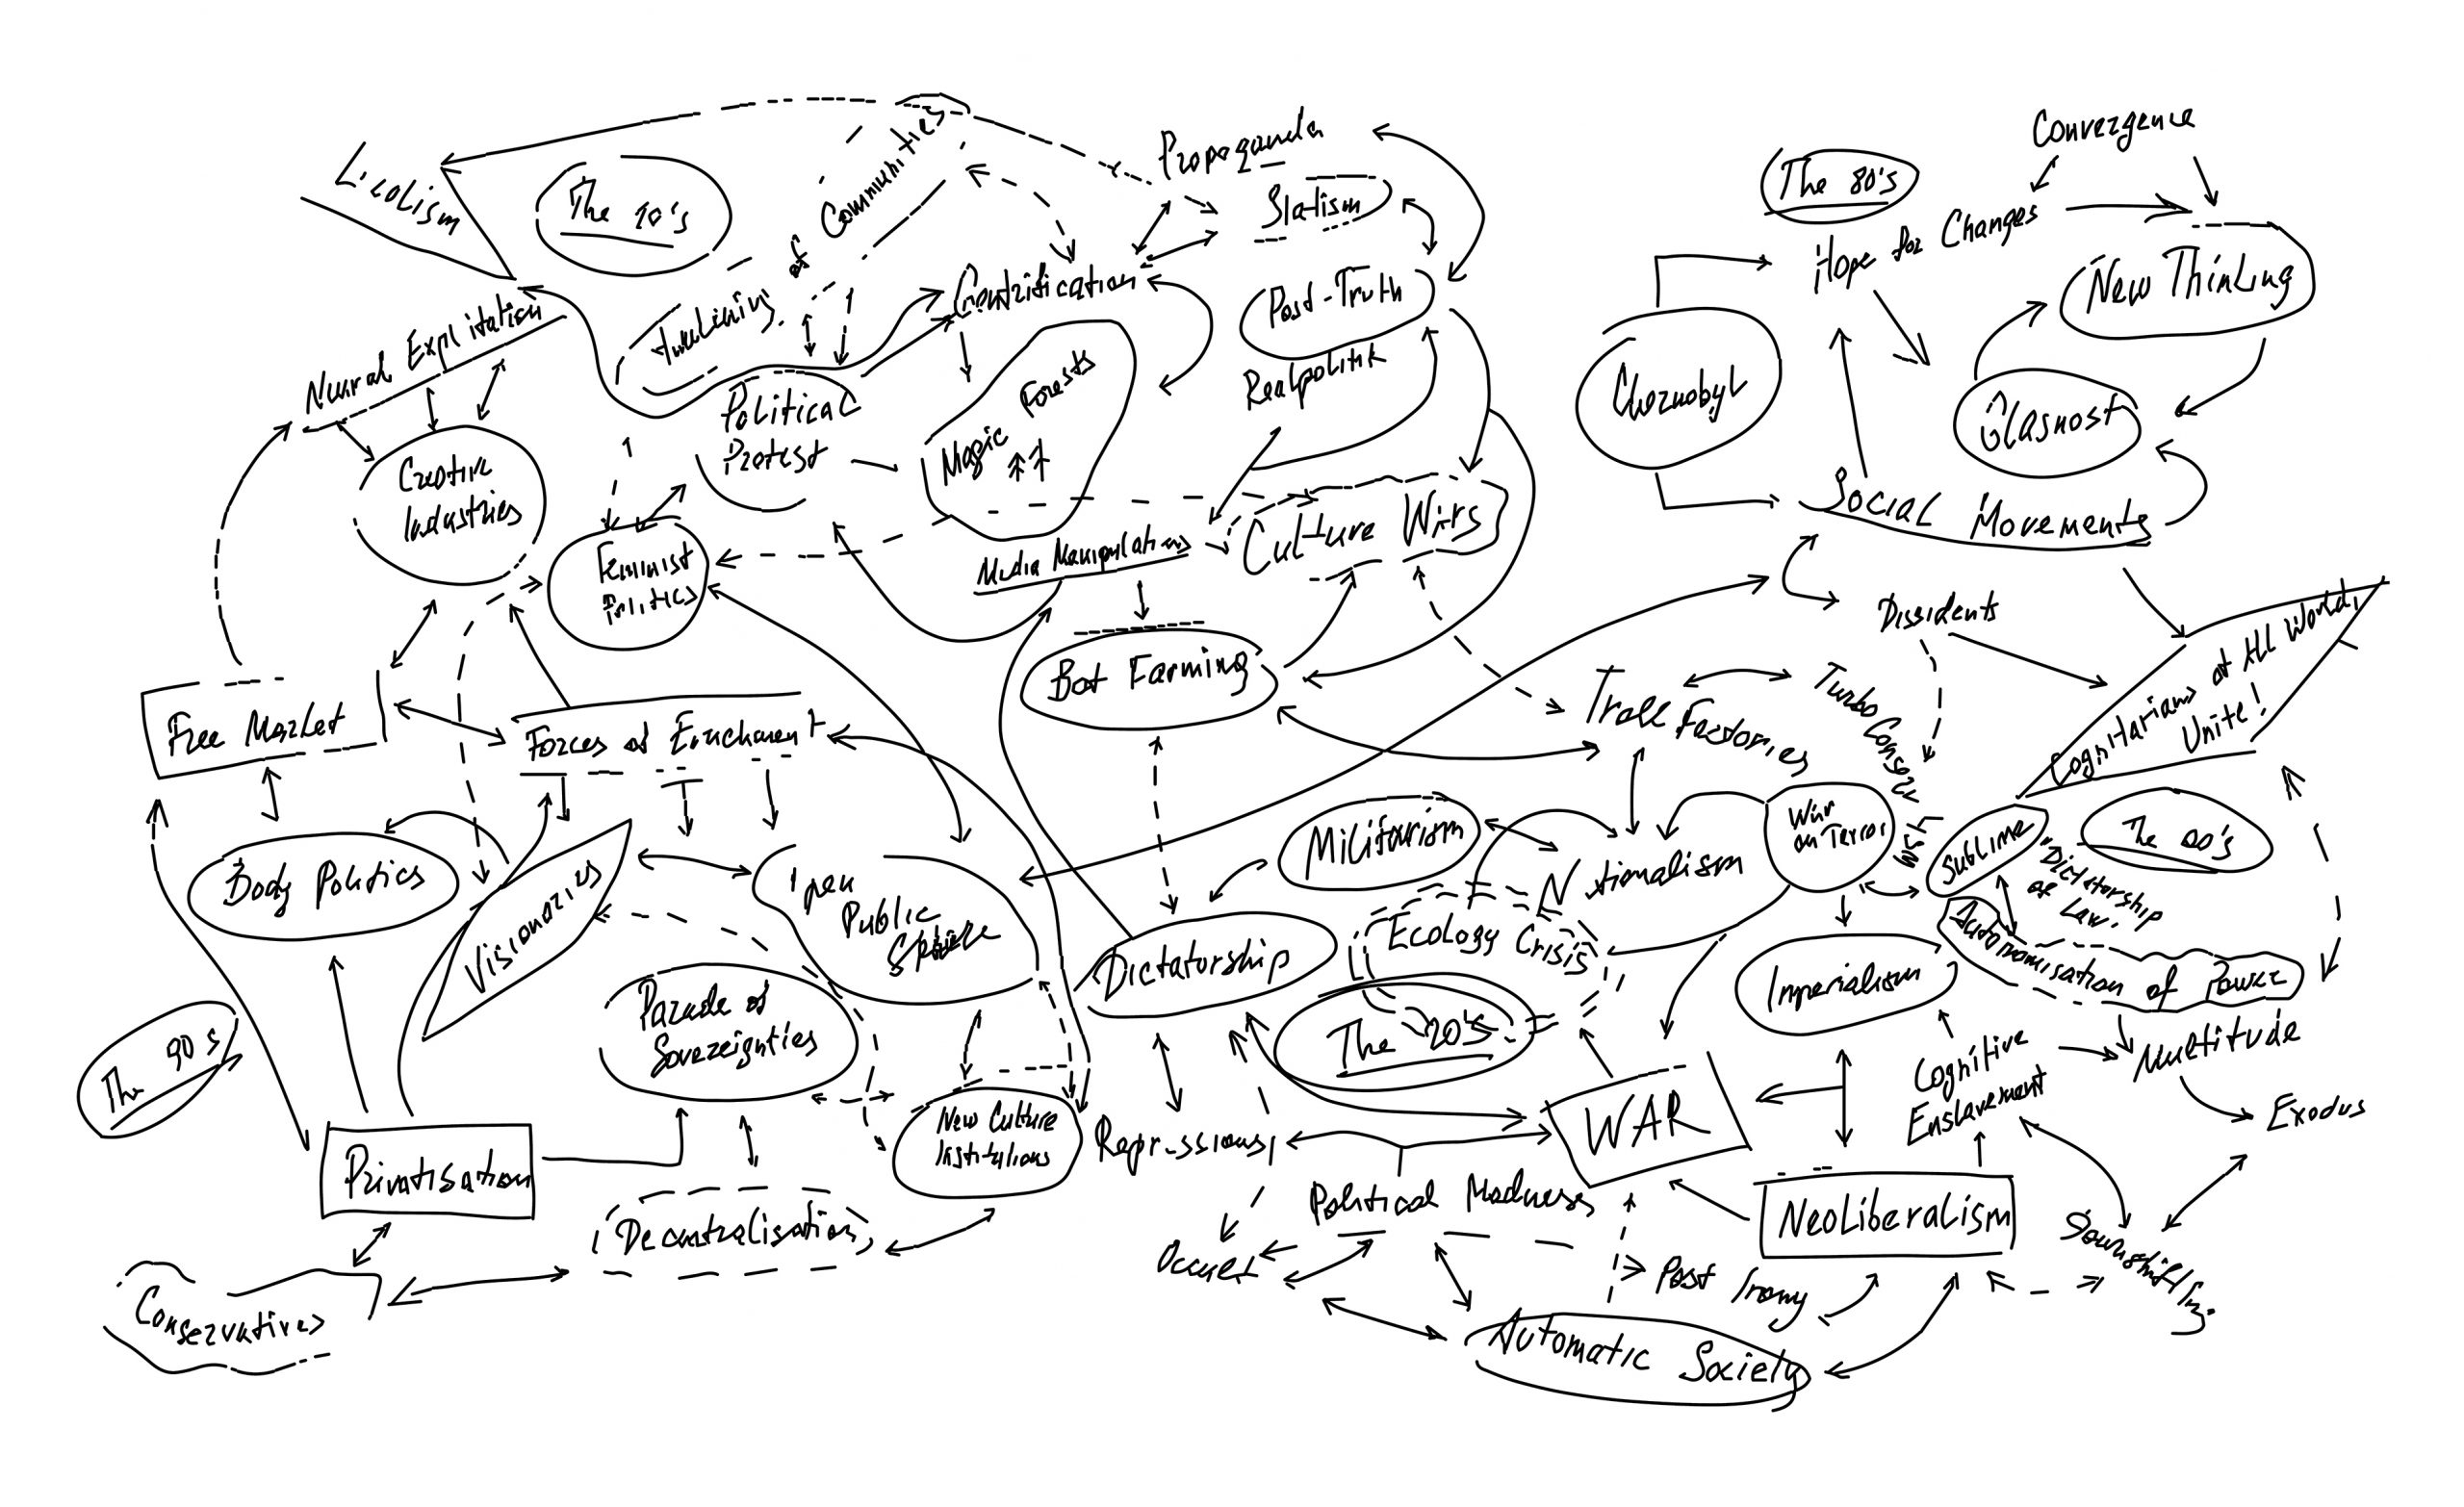 Convergence
The 80's
Hope for Changes
New Thinking
Chernobyl
Glasnost
Social Movements
Dissidents
Cognitarians of All World,
Unite!
Localism
The 10's
of Communities
Propaganda
Statism
Gentrification
Post-Truth
Realpolitik
Neural Explitation
Creative
Industries
Political
Protest
Magic
Forests
Feminist
Politics
Media Manipulations
Culture Wars
Bot Farming
Troll Factories
Free Market
Forces of Enrichment
Body Politics
Visionaries
Open
Public
Parade of
Sovereignties
New Culture
Institutions
The 90s
Privatisation
Decentralisation
Conservatives
Militarism
Nationalism
War
on Terror
Sublime
"Dictatorship
of Law"
The 00's
Dictatorship
Ecology Crisis
The 20's
Imperialism
Autonomisation of Power
Multitude
Cognitive
Enslavement
Exodus
Repressions
WAR
Political Madness
Neoliberalism
Downshifting
Occult
Post Irony
Automatic Society